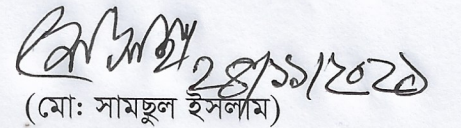 ২৪/১১/২০২১
(মো: সামছুল ইসলাম)